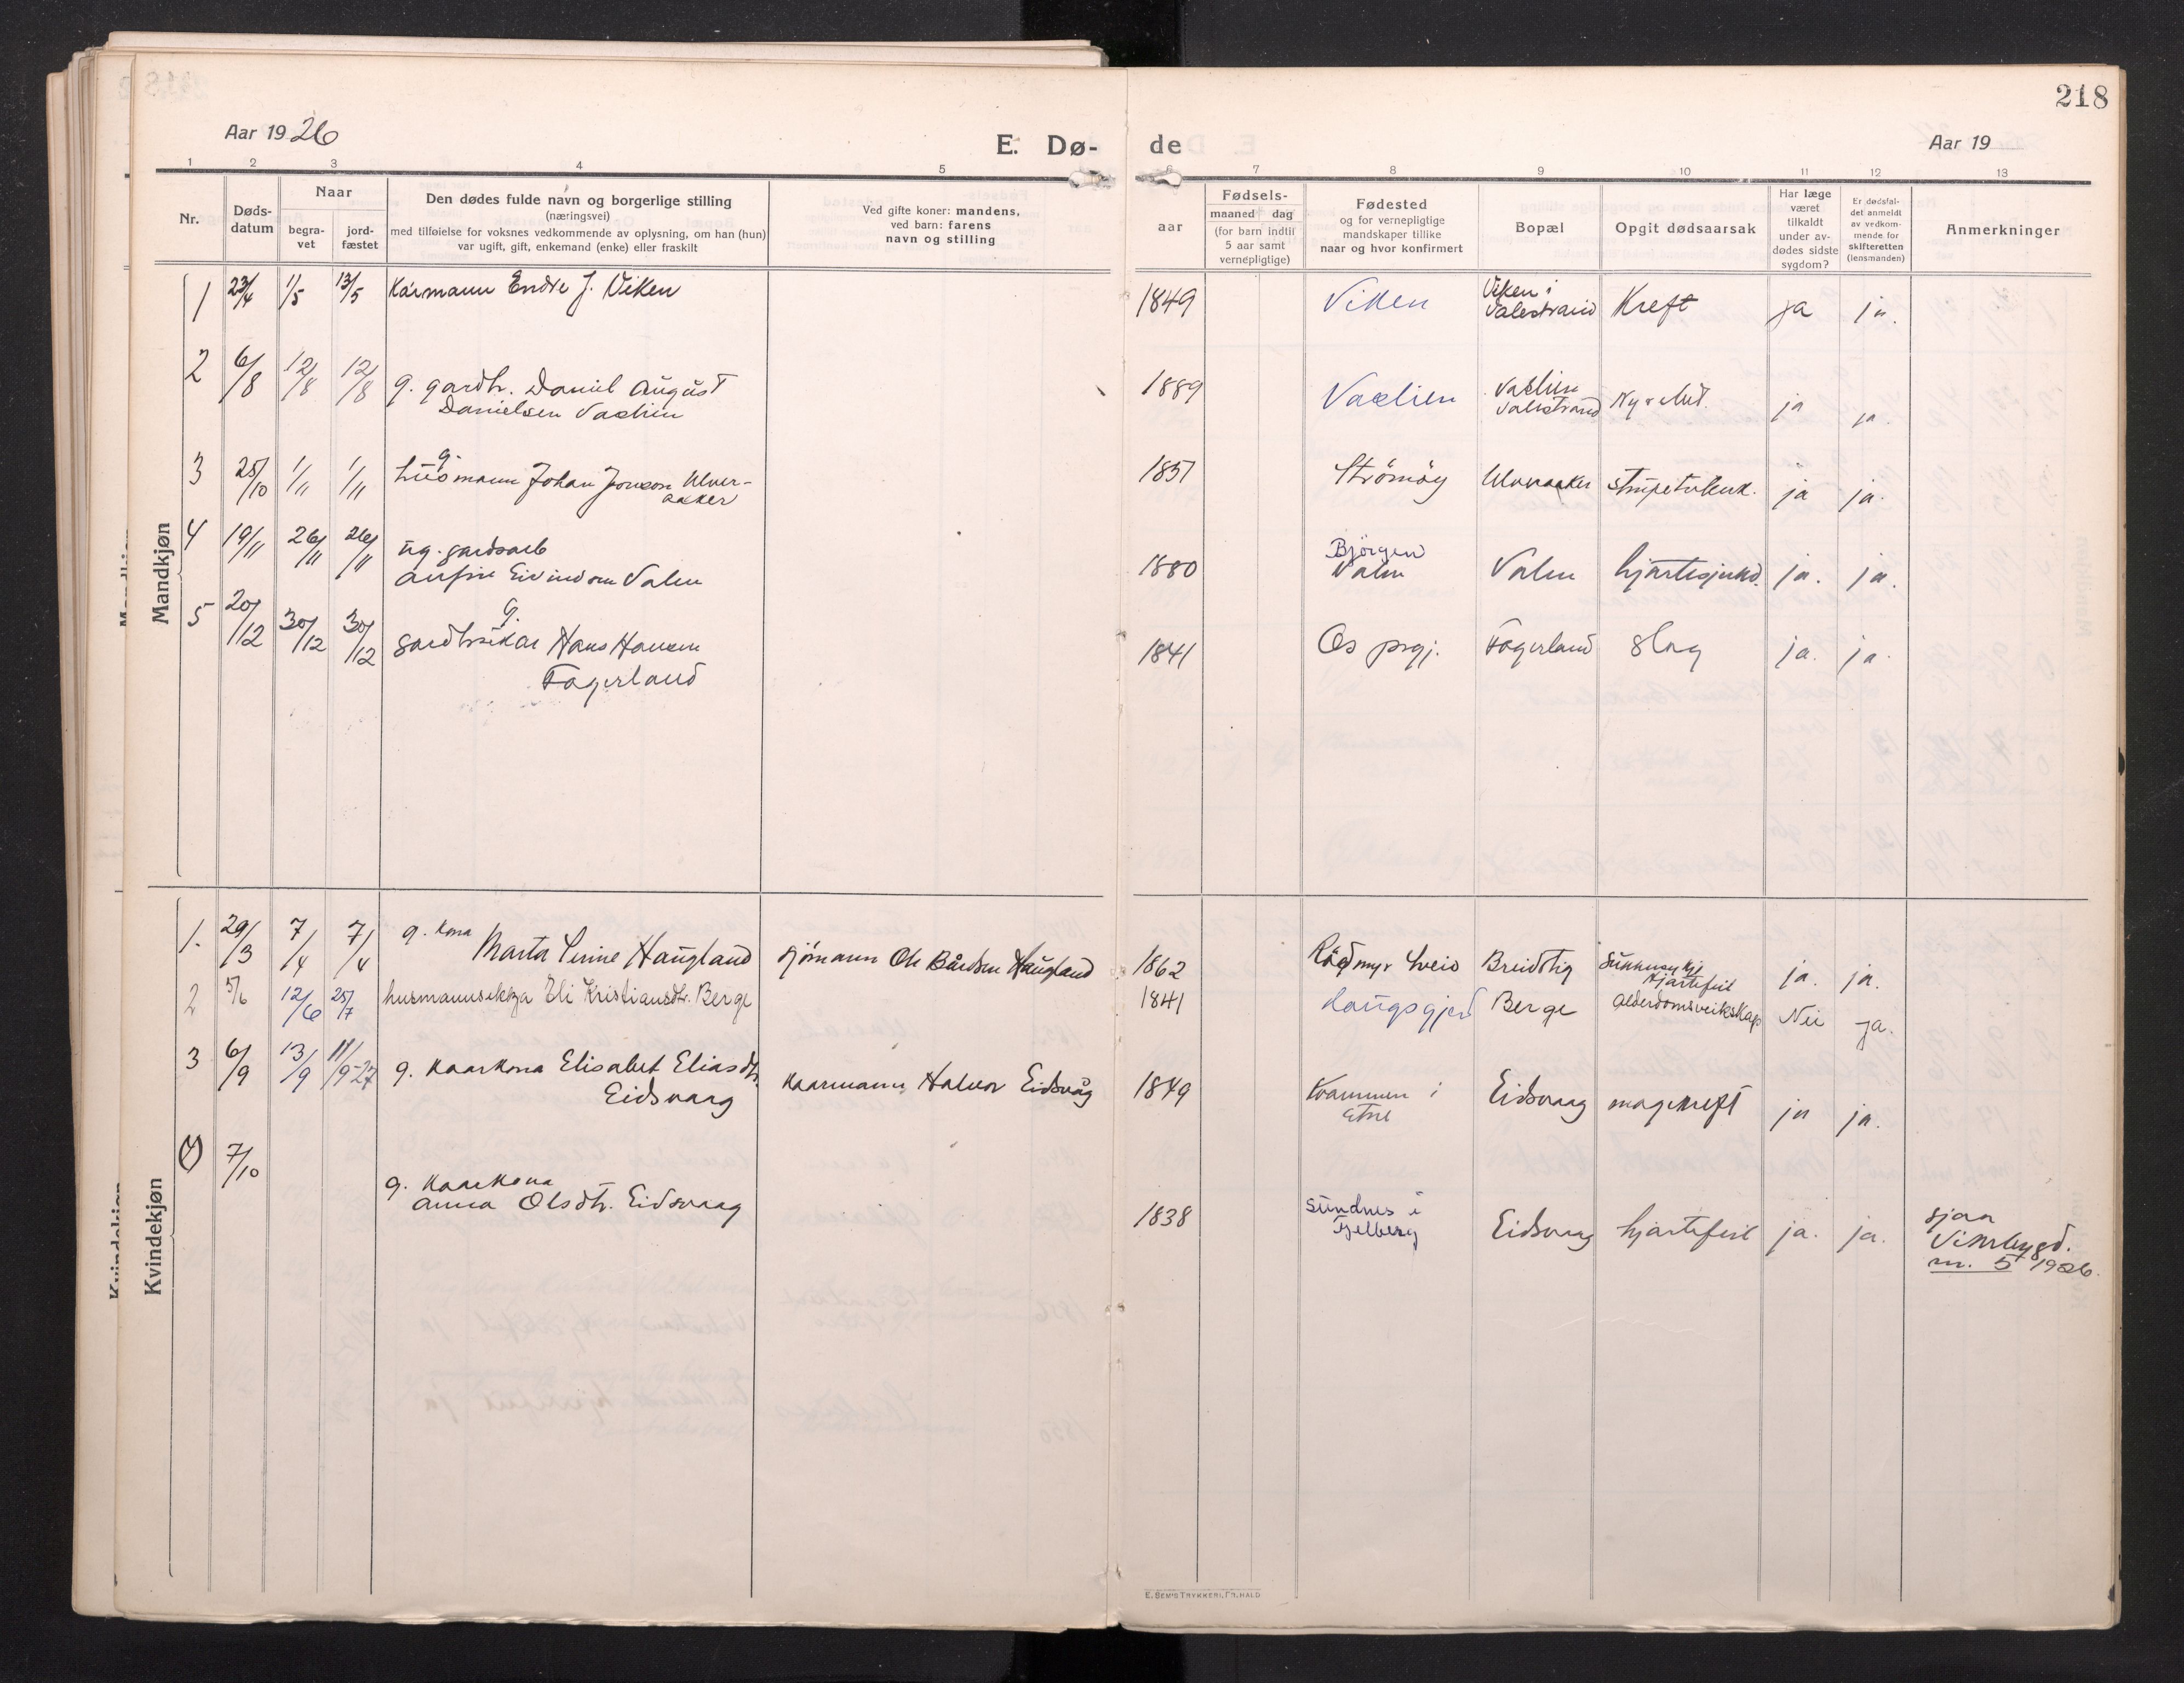 218
Aar 1926
E. Dø-
de
Aar 19
1 2 3 4 5 6 7 8 9 10 11 12 13
Nr.
Døds-
datum
Naar
begra-
vet
jord-
fæstet
Den dødes fulde navn og borgerlige stilling
(næringsvei)
med tilføielse for voksnes vedkommende av oplysning, om han (hun)
var ugift, gift, enkemand (enke) eller fraskilt
Ved gifte koner: mandens,
ved barn: farens
navn og stilling
aar
Fødsels-
maaned dag
(for barn indtil
5 aar samt
vernepligtige)
Fødested
og for vernepligtige
mandskaper tillike
naar og hvor konfirmert
Bopæl
Opgit dødsaarsak
Har læge
været
tilkaldt
under av-
dødes sidste
sygdom?
Er dødsfal-
det anmeldt
av vedkom-
mende for
skifteretten
(lensmanden)
Anmerkninger
Mandkjøn
1 23/4 1/5 13/5 Kårmann Endre J. Viken 1849 Viken Viken i
Valestrand Kreft ja ja.
2 6/8 12/8 12/8 g. gardbr. Daniel August
Danielsen Vaelien 1889 Vaelien Vaelien
Valestrand ja ja.
3 25/10 1/11 1/11 g.
husmann Johan Jonson Ulver-
aaker 1857 Strömöy Ulveraaker ja ja.
4 19/11 26/11 26/11 ug. gardsarb
Anfin Eivindson Valen 1880 Björgen
Valen Valen hjartesjukd. ja. ja.
5 20/12 30/12 30/12 g.
gardbrukar Hans Hansen
Fagerland 1841 Os prgj. Fagerland Slag ja. ja.
Kvindekjøn
1. 29/3 7/4 7/4 g. kona
Marta Serine Haugland sjömann Ole Bårdsen Haugland 1862 Rödmyr Sveio Breidstig Sukkersykj
Hjartefeil ja. ja.
2 5/6 12/6 25/7 husmannsekkja Eli Kristiansdtr. Berge 1841 Haugsgjerd Berge Alderdomsveikskap Nei ja.
3 6/9 13/9 11/9-27 g. Kaarkona Elisabet Eliasdtr.
Eidsvaag Kaarmann Halvor Eidsvåg 1849 Kvammen i
Etne Eidsvaag magekreft ja ja.
4 7/10 g. Kaarkona
Anna Olsdtr. Eidsvaag 1838 Sundnes i
Fjelberg Eidsvaag hjartefeil ja. ja. sjaa
Vikebygd.
nr. 5 1926.
E. SEM'S TRYKKERI, FR. HALD